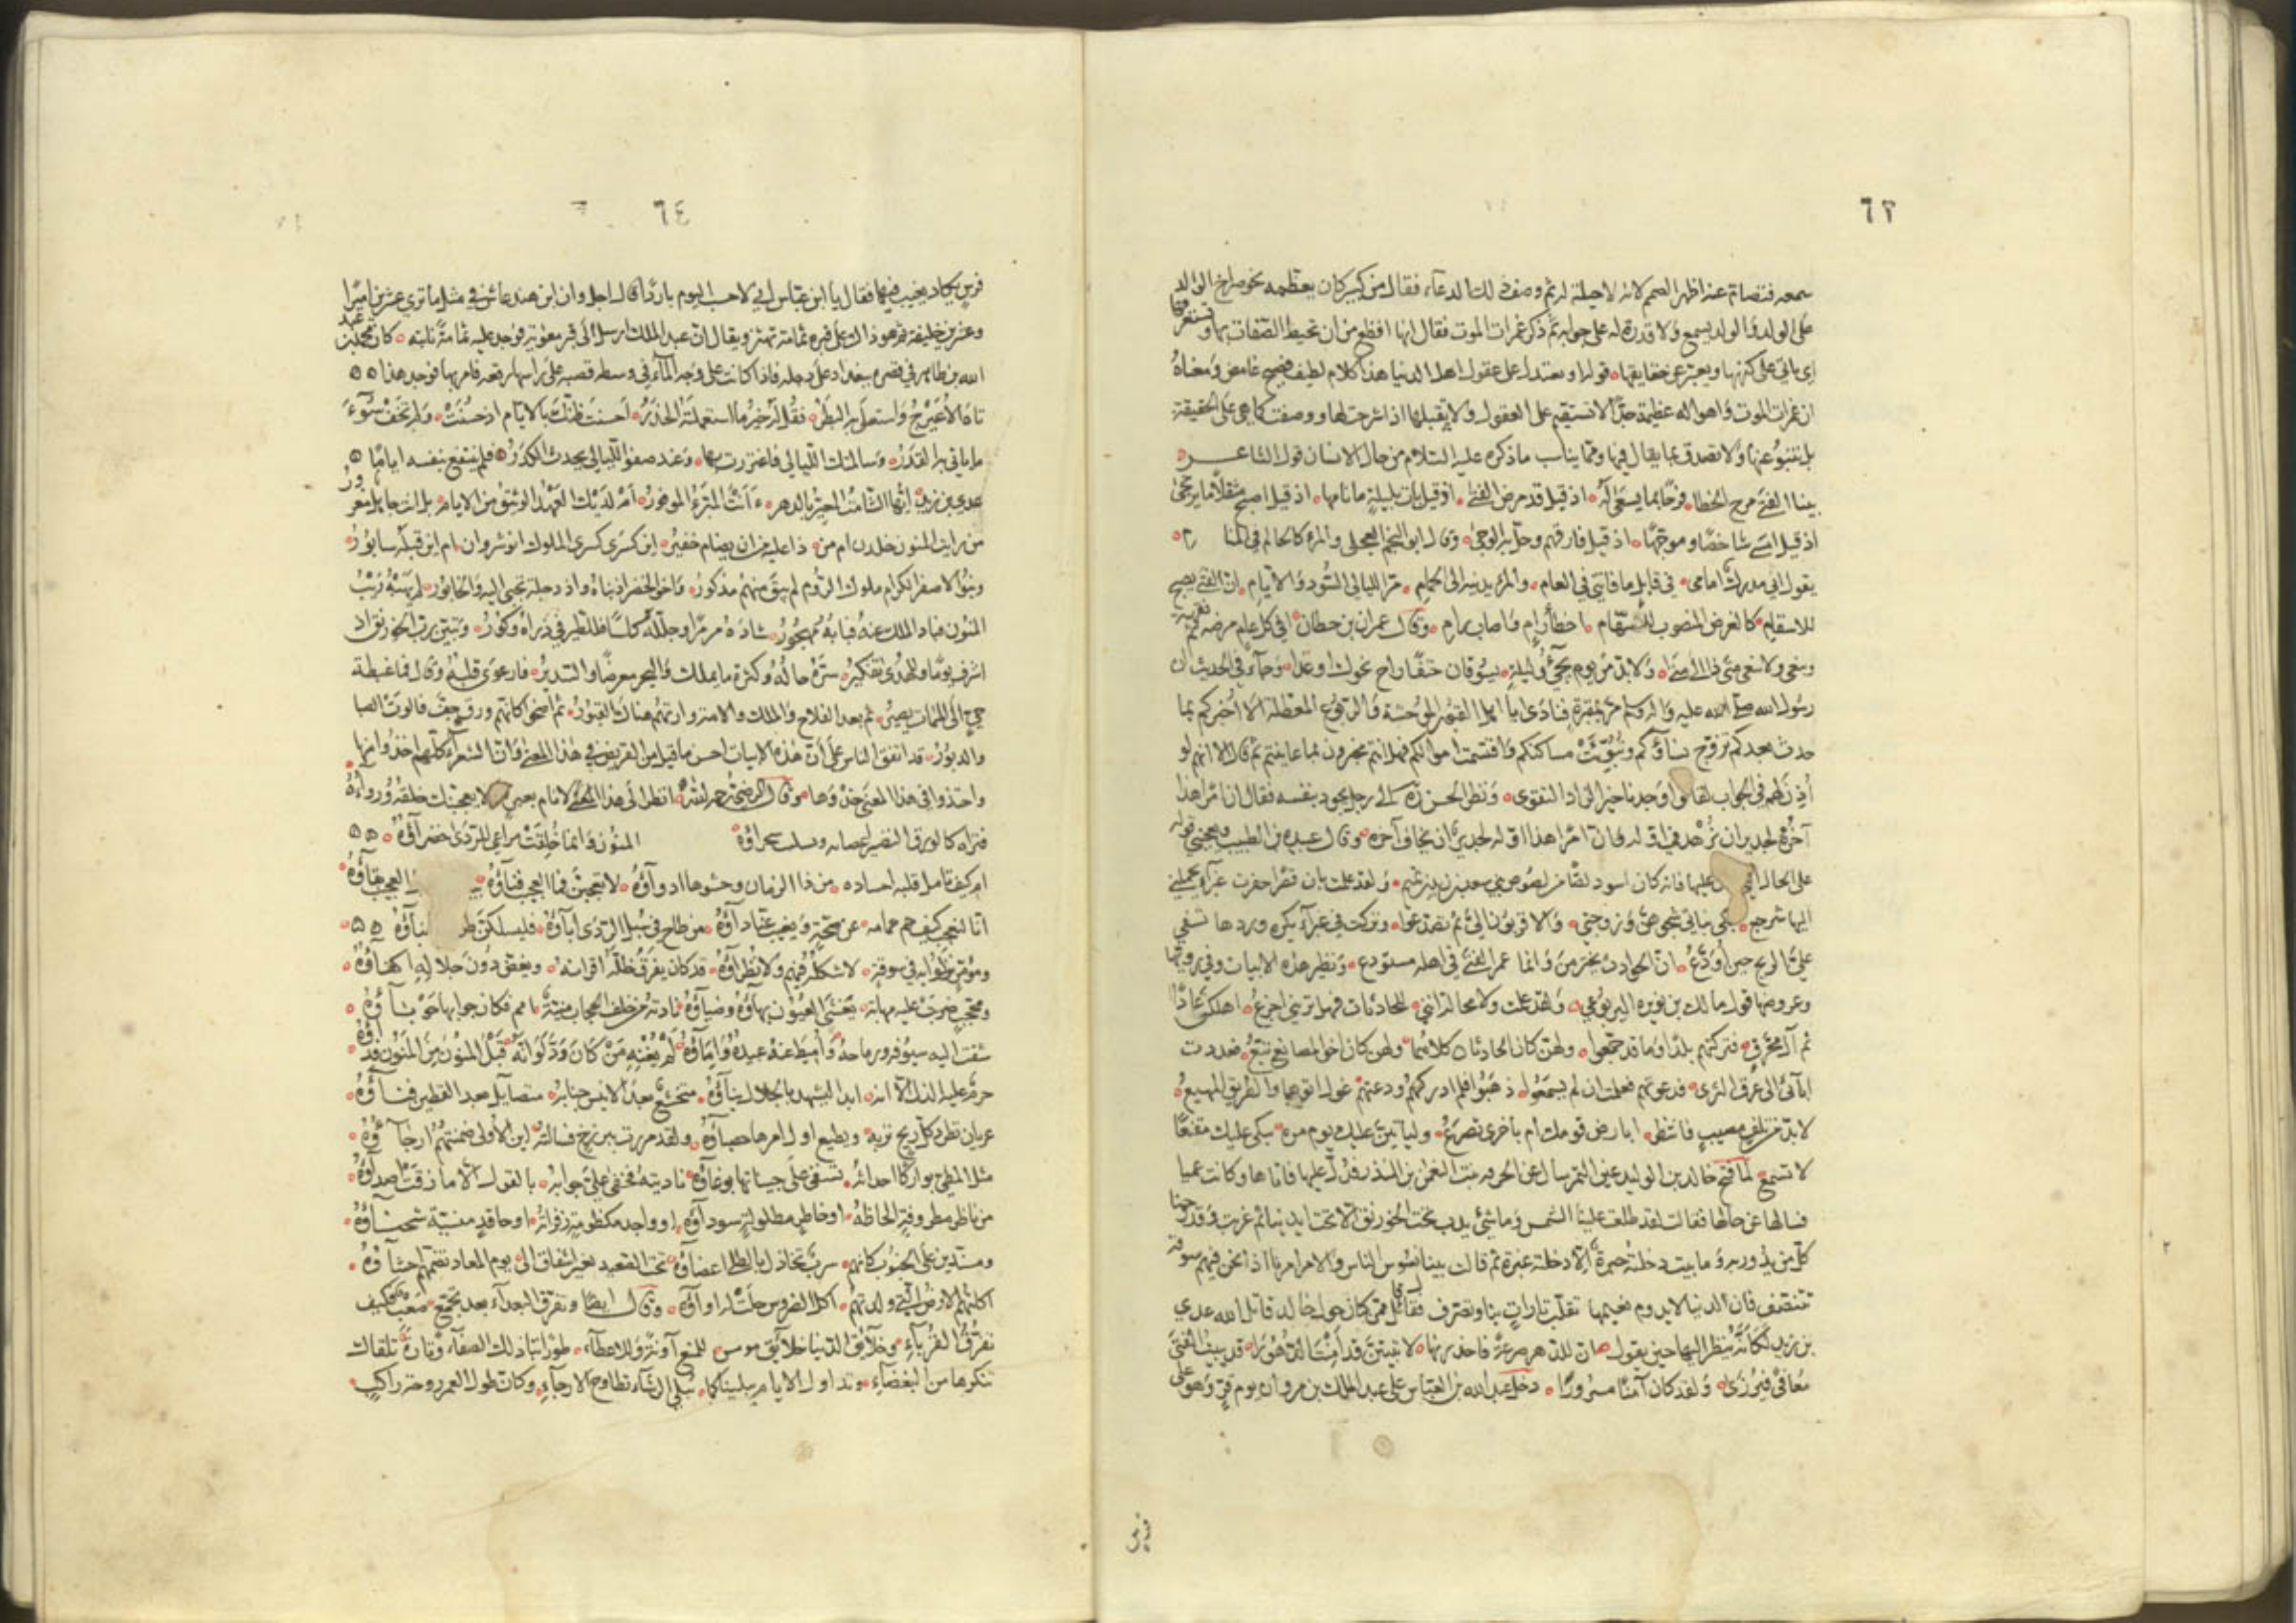 ٦٣
سمعه فتصامّ عنه اظهر الصمم لانه لا حيلة له ثم وصف ذلك الدعاء فقال من كبير كان يعظمه نحو صراخ الوالد
على الولد والولد يسمع ولا قدرة له على جوابه ثم ذكر غمرات الموت فقال انها افظع من ان تحيط الصفات بها وتستغرقها
اى ياتى على كنهها ويعبر عن حقايقها قوله او تعتدل على عقول اهل الدنيا هذا كلام لطيف فصيح غامض ومعناه
ان غمرات الموت واهواله عظيمة جدا لا تستقيم على العقول ولا تقبلها اذا شرحت لها ووصفت كما هى على الحقيقة
بل تنبو عنها ولا تصدق بما يقال فيها ومما يناسب ما ذكره عليه السلام من حال الانسان قول الشاعر
بينا الفتى مرح الخطا فرحا بما يسعى له اذ قيل قد مرض الفتى اذ قيل بات بليلة ما نامها اذ قيل اصبح مثقلا ما يرتجى
اذ قيل امسى شاخصا وموجها اذ قيل فارقهم وحل به الوحى وقال ابو النجم العجلى والمرء كالحالم فى المنام
يقول انى مدرك امامى فى قابل ما فاتنى فى العام والمرء يدنيه الى الحمام مر الليالى السود والايام ان الفتى يصبح
للاسقام كالغرض المنصوب للسهام اخطأ رام واصاب رام وقال عمران بن حطان افى كل عام مرضة ثم نقهة
وينعى ولا ينعى متى ذا الى متى ولا بد من يوم يجىء وليلة يسوقان حتفا راح نحوك او غدا وجاء فى الحديث ان
رسول الله صلى الله عليه واله وسلم مر بمقبرة فنادى يا اهل القبور الموحشة والربوع المعطلة الا اخبركم بما
حدث بعدكم تزوج نساؤكم وتبوئت مساكنكم واقتسمت اموالكم فهل انتم مخبرون بما عاينتم ثم قال الا انهم لو
أذن لهم فى الجواب لقالوا وجدنا خير الزاد التقوى ونظر الحسن رة الى رجل يجود بنفسه فقال ان امرا هذا
آخره لجدير ان يزهد فى اوله وان امرا هذا اوله لجدير ان يخاف آخره وقال عبدة بن الطبيب ويعجبنى قوله
على الحال التى عليها فانه كان اسود لصا من لصوص بنى سعد بن زيد بن تميم ولقد علمت بان قصرى حفرة غبراء يحملنى
اليها شرجع فبكى بناتى شجوهن وزوجتى والاقربون الىّ ثم تصدعوا وتركت فى غبراء يكره وردها تسفى
علىّ الريح حين أودع ان الحوادث يخترمن وانما عمر الفتى فى اهله مستودع ونظير هذه الابيات فى رويها
وعروضها قول مالك بن نويره اليربوعى ولقد علمت ولا محالة اننى للحادثات فهل ترينى اجزع اهلكن عادا
ثم آل محرق فتركنهم بلدا وما قد جمعوا ولهن كان الحارثان كلاهما ولهن كان اخو المصانع تبع فعددت
ابائى الى عرق الثرى فدعوتهم فعلمت ان لم يسمعوا ذهبوا فلم ادركهم ودعتهم غول اتوها والطريق المهيع
لا بد من تلف مصيب فانتظر ابارض قومك ام بأخرى تصرع ولياتين عليك يوم مرة يبكى عليك مقنعا
لا تسمع لما فتح خالد بن الوليد عين التمر سال عن الحرقه بنت النعمن بن المنذر فدل عليها فاتاها وكانت عميا
فسالها عن حالها فقالت لقد طلعت علينا الشمس وما شىء يدب تحت الخورنق الا تحت ايدينا ثم غربت وقد رحمنا
كل من يدور به وما بيت دخلته حبرة الا دخلته عبرة ثم قالت بينا نسوس الناس والامر امرنا اذا نحن فيهم سوقة
نتنصف فان الدنيا لا يدوم نعيمها تقلب تارات بنا وتصرف فقال قائل ممن كان حول خالد قاتل الله عدى
بن زيد لكانه ينظر اليها حين يقول ان للدهر صرعة فاحذرنها لا تبيتن قد أمنت الدهورا قد يبيت الفتى
معافى فيرزى ولقد كان آمنا مسرورا دخل عبد الله بن العباس على عبد الملك بن مروان يوم قر وهو على
فرش
٦٤
فرش يكاد يغيب فيها فقال يا ابن عباس انى لاحسب اليوم باردا قال اجل وان ابن هند عاش فى مثل ما ترى عشرين اميرا
وعشرين خليفة ثم هو ذاك على قبره ثمامة تهتز ويقال ان عبد الملك ارسل الى قبر معوية فوجد عليه ثمامة نابته كان محمد بن عبد
الله بن طاهر فى قصره ببغداد على دجله فاذا كانت على وجه الماء فى وسطه قصبه على راسها رقعه فامر بها فوجد هذا
تاه الأعيرج واستعلى به البطر فقل له خير ما استعملته الحذر احسنت ظنك بالايام اذ حسنت ولم تخف سوء
ما ياتى به القدر وسالمتك الليالى فاغتررت بها وعند صفو الليالى يحدث الكدر فلم ينتفع بنفسه اياما
عدى بن زيد ايها الشامت المعير بالدهر ءانت المبرء الموفور ام لديك العهد الوثيق من الايام بل انت جاهل مغرور
من رايت المنون خلدن ام من ذا عليه من ان يضام خفير اين كسرى كسرى الملوك انوشروان ام اين قبله سابور
وبنو الاصفر الكرام ملوك الروم لم يبق منهم مذكور واخو الحضر اذ بناه واذ دجلة تجبى اليه والخابور لم يهبه ريب
المنون فباد الملك عنه فبابه مهجور شاده مرمرا وجلله كلسا فللطير فى ذراه وكور وتبين رب الخورنق اذ
اشرف يوما وللهدى تفكير سره حاله وكثرة ما يملك والبحر معرضا والسدير فارعوى قلبه وقال فما غبطة
حىّ الى الممات يصير ثم بعد الفلاح والملك والامة وارتهم هناك القبور ثم اضحوا كانهم ورق جف فالوت الصبا
والدبور قد اتفق الناس على أن هذه الابيات احسن ما قيل من القريض فى هذا المعنى وان الشعراء كلهم اخذوا منها
واحتذوا فى هذا المعنى حذوها وقال الرضى رحمه الله انظر الى هذا الانام بعين لا يعجبنك خلقه ورواءه
فتراه كالورق النضير المنون وانما خلقت مراعى للردى خضراؤه
لا تعجبن فما العجيب فناؤه العجيب بقاؤه
انا لنعجب كيف حم حمامه عن صحة ويغيب عنا داؤه من طاح فى سبل الردى آباؤه فليسلكن
ومؤمر نزلوا به فى سوقة لا شكله فيهم ولا نظراؤه قد كان يفرق ظله اقرانه ويغض دون جلاله اكفاؤه
ومحجب ضربت عليه مهابة يغشى العيون بهاؤه وضياؤه نادته من خلف الحجاب منية امم فكان جوابها حوباؤه
شقت اليه سيوفه ورماحه وأميط عنه عبيده واماؤه لم يغنه من كان ود لو انه قبل المنون من المنون فداؤه
حرم عليه الذل الا انه ابدا ليشهد بالجلال بناؤه متخشع بعد الانيس جنابه متضايل بعد القطين فناؤه
عريان تطرد كل ريح تربه ويطيع اول امرها حصباؤه ولقد مررت ببرزخ فسالته اين الأولى ضمنتهم ارجاؤه
مثل المطى بواركا اجداثه تسفى على جنباتها بوغاؤه ناديته فخفى علىّ جوابه بالقول الا ما زقت اصداؤه
من ناظر مطروفة الحاظه او خاطر مطلولة سوداؤه او واجد مكظومة زفراته او حاقد منسية شحناؤه
ومسندين على الجنوب كانهم شرب تخاذل بالطلا اعضاؤه تحت الصعيد لغير اشفاق الى يوم المعاد تضمهم احشاؤه
اكلتهم الارض التى ولدتهم اكل الضروس حلت له اكلاؤه وقال ايضا وتفرق البعداء بعد تجمع صعب فكيف
تفرق القرباء وخلائق الدنيا خلائق مومس للمنع آونة وللاعطاء طورا تبادلك الصفاء وتارة تلقاك
تنكرها من البغضاء وتداول الايام يبلينا كما يبلى الرشاء تطاوح الارجاء وكان طول العمر روحة راكب